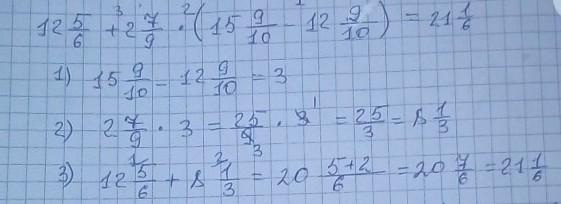 12 5/6 +³ 2 7/9 ·² (15 9/10 -¹ 12 9/10) = 21 1/6
1) 15 9/10 - 12 9/10 = 3
2) 2 7/9 · 3 = 25/9 ₃ · 3 ¹ = 25/3 = 8 1/3
3) 12 ¹5/6 + 8 ²1/3 = 20 5+2/6 = 20 7/6 = 21 1/6